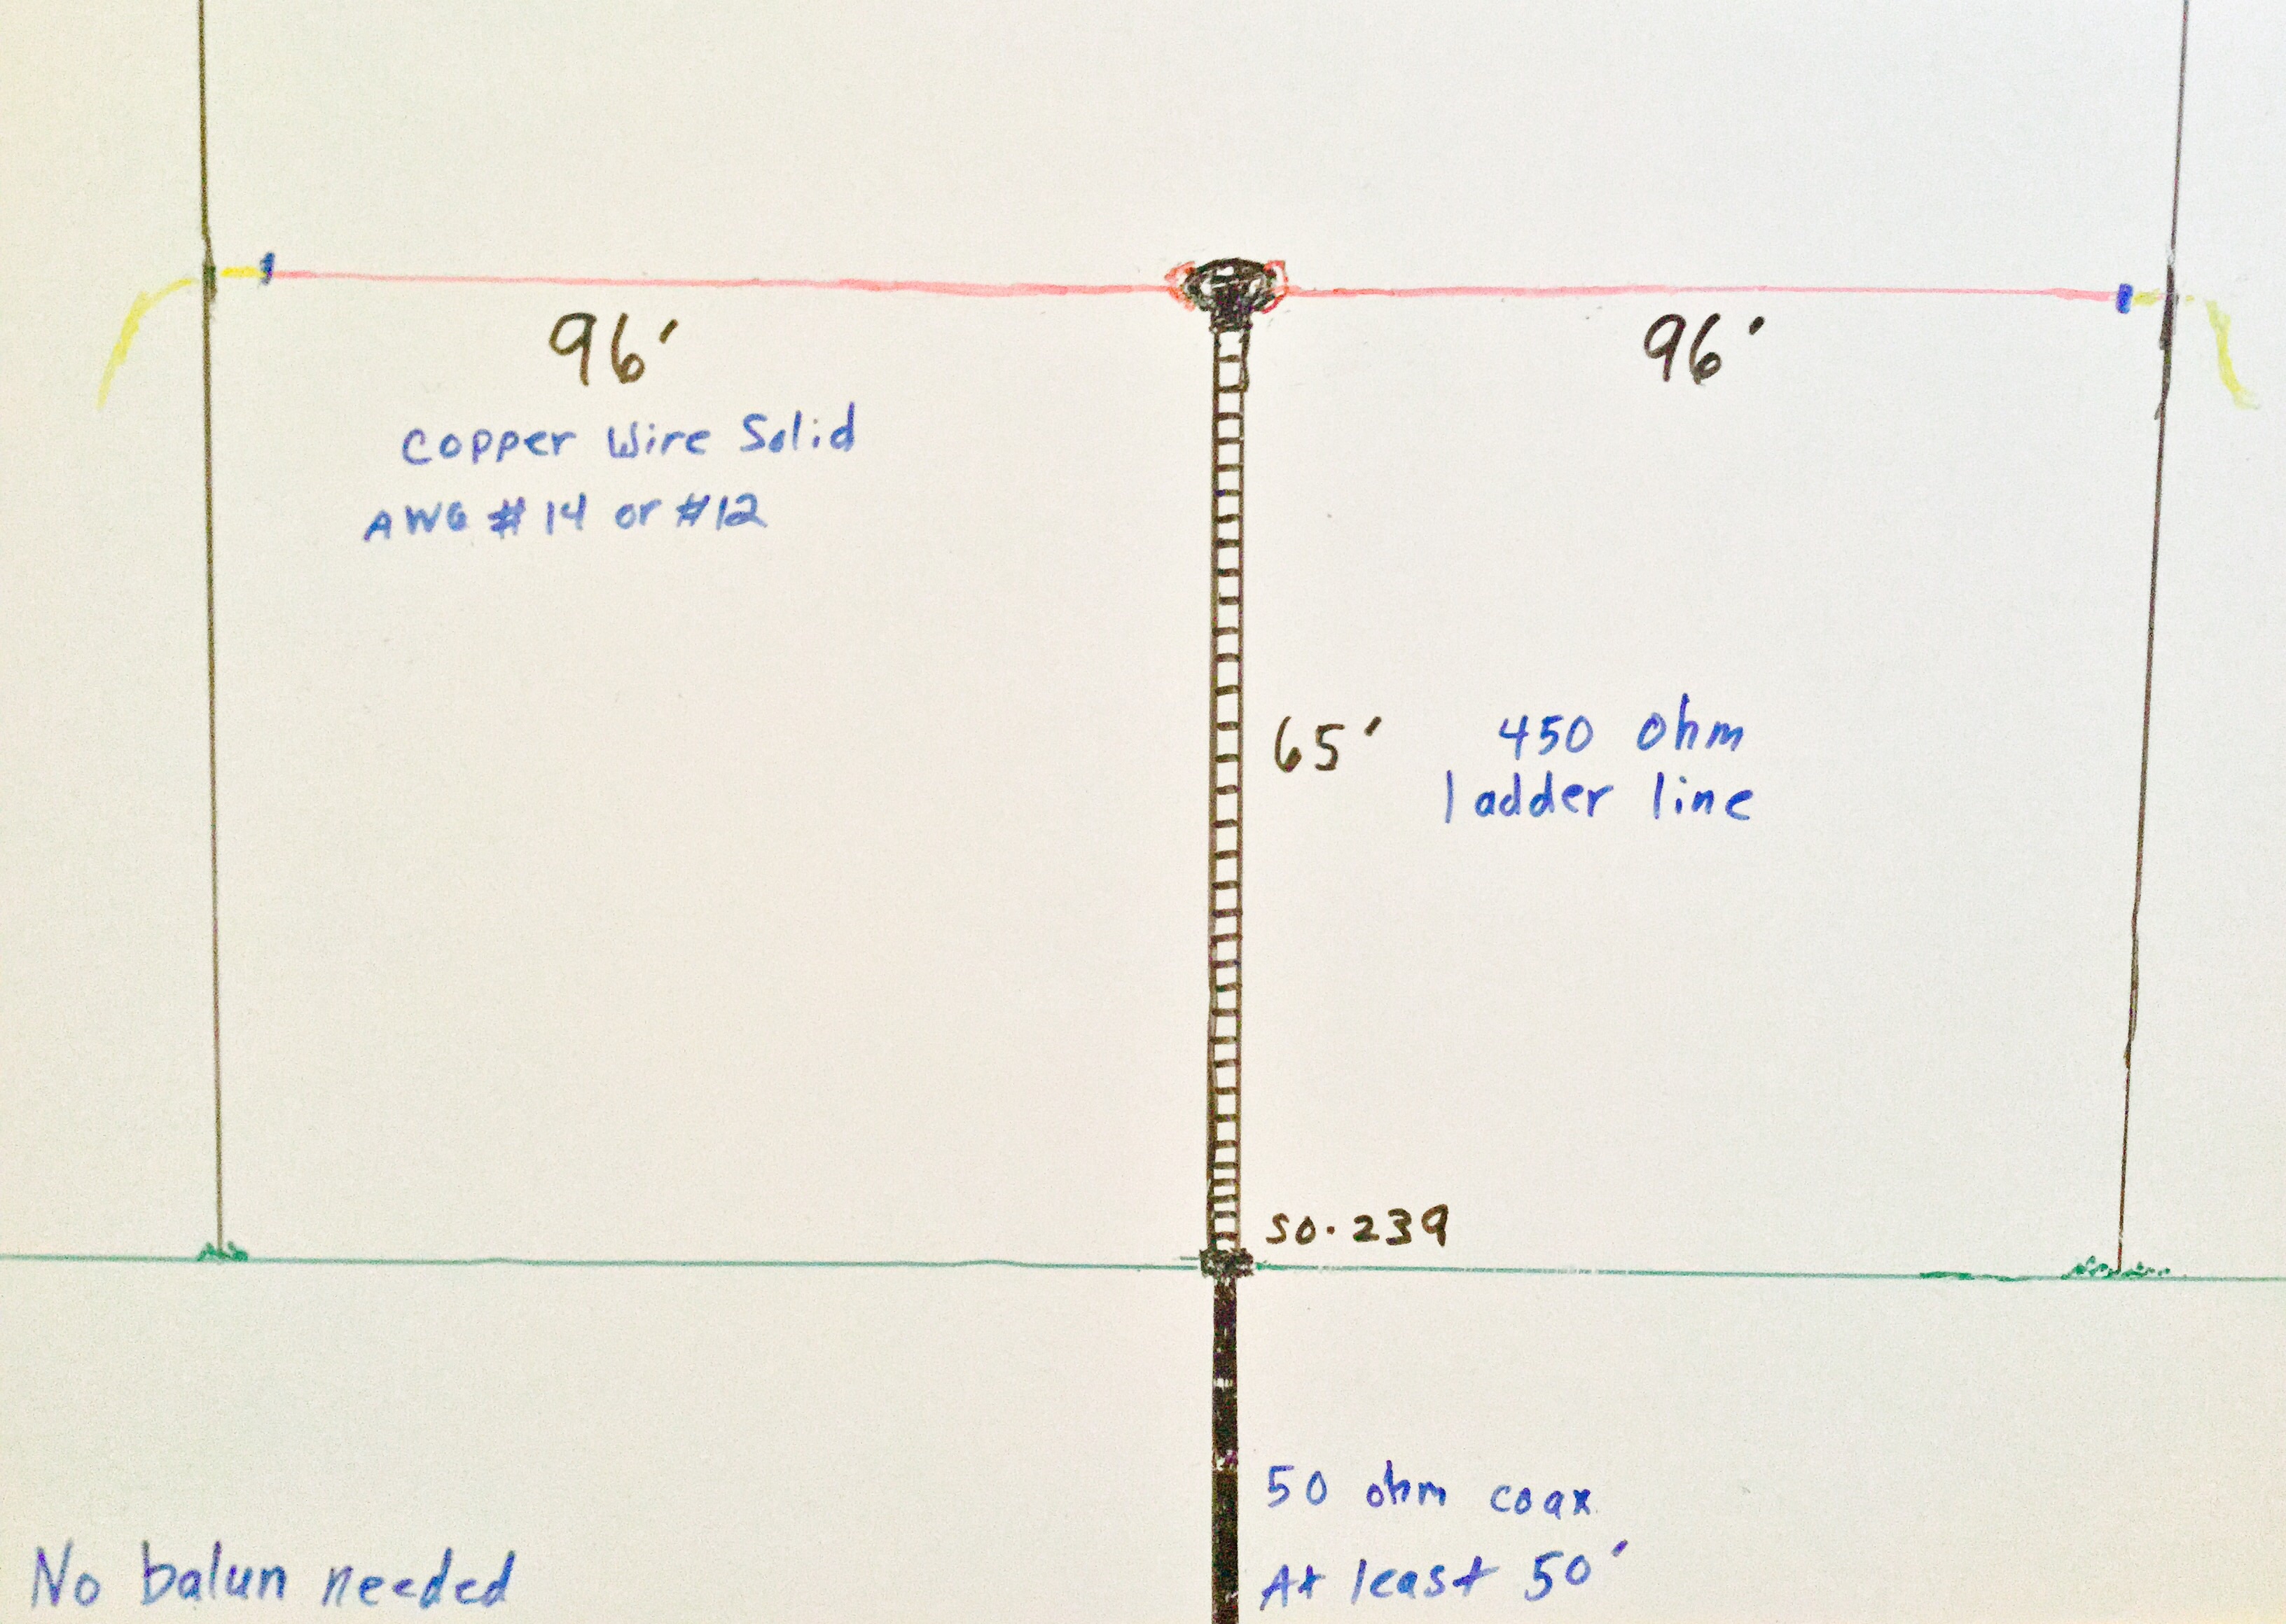 96'
96'
Copper Wire Solid
AWG #14 or #12
65'
450 ohm
ladder line
SO.239
50 ohm coax
At least 50'
No balun needed